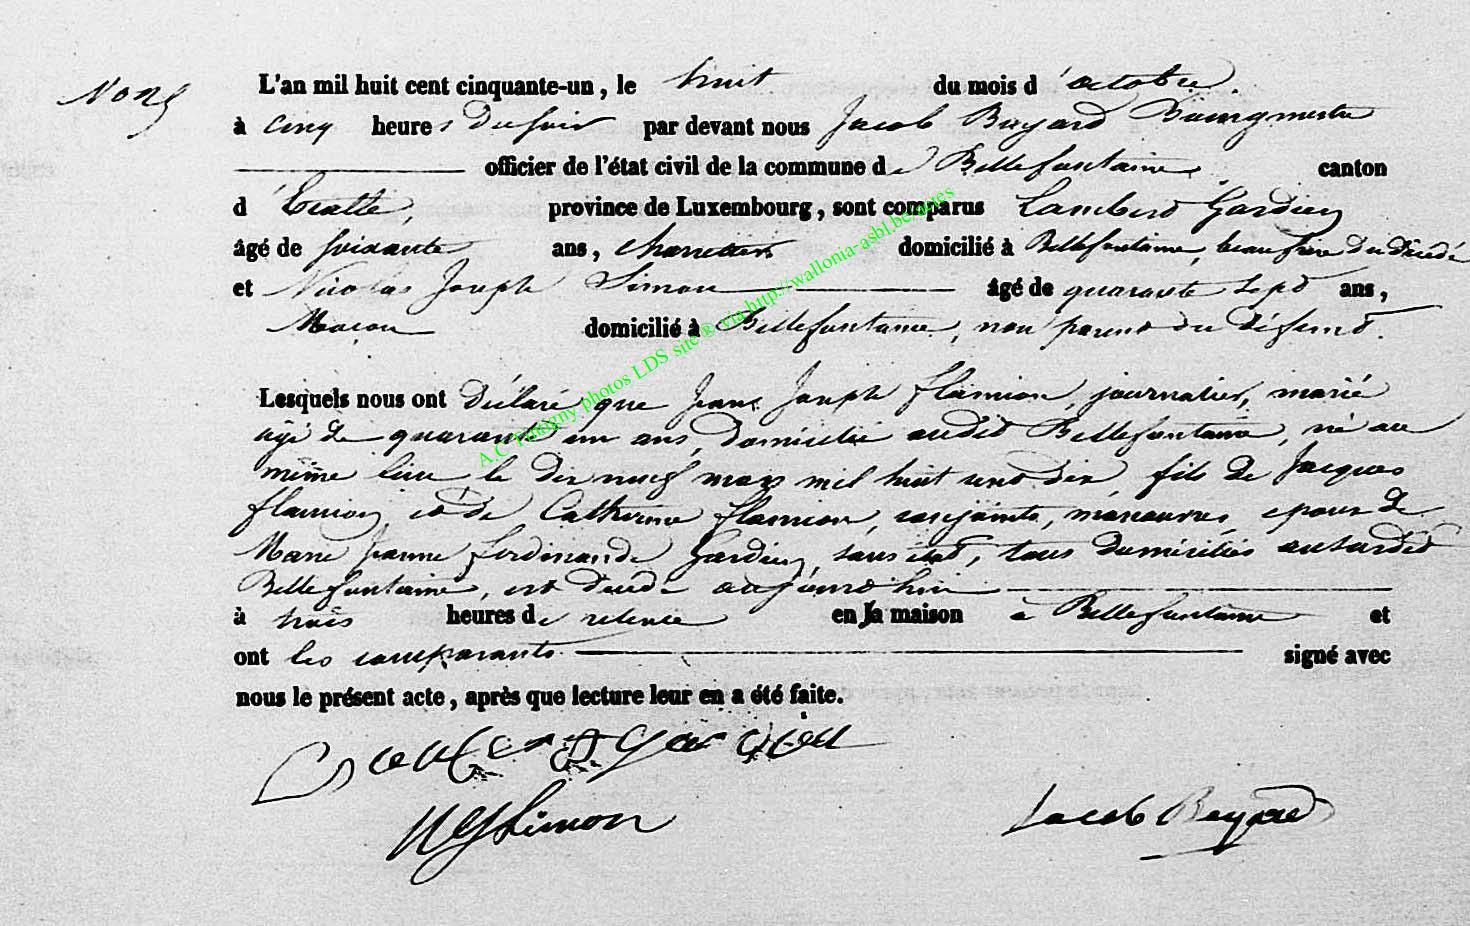 L'an mil huit cent cinquante-un, le huit du mois d'octobre.
à cinq heures du soir par devant nous Jacob Bayard Bourgmestre
officier de l'état civil de la commune de Bellefontaine, canton
d'Etalle, province de Luxembourg, sont comparus Lambert Gardien
âgé de soixante ans, charretier domicilié à Bellefontaine, beau frère du décédé
et Nicolas Joseph Simon âgé de quarante sept ans,
Maçon domicilié à Bellefontaine, non parent du défunt.
Lesquels nous ont déclaré que Jean Joseph Flamion, journalier, marié
âgé de quarante un ans, domicilié audit Bellefontaine, né au
même lieu le dix neuf mars mil huit cent dix, fils de Jacques
Flamion et de Catherine Flamion, conjoints, manœuvres, époux de
Marie Jeanne Ferdinande Gardien, sans état, tous domiciliés au susdit
Bellefontaine, est décédé aujourd'hui
à trois heures de relevée en sa maison à Bellefontaine et
ont les comparants signé avec
nous le présent acte, après que lecture leur en a été faite.
Lambert Gardien
NJSimon
Jacob Bayard
A.C Tintigny photos LDS site © via http://wallonia-asbl.be/actes